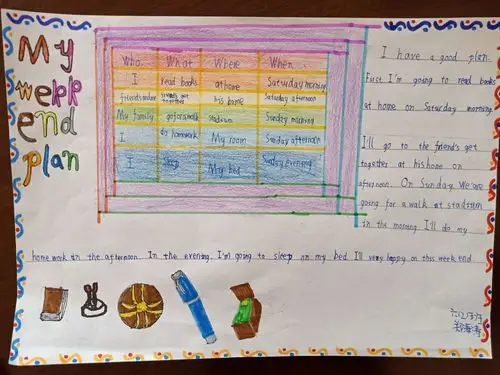 My
wekk
end
plan
Who. What Where When.
I read books at home Saturday morning
friends and me friends get together his home Saturday afternoon
My family go for a walk stadium Sunday morning
I do homework My room Sunday afternoon
I sleep My bed Sunday evening
I have a good plan.
First I'm going to read books
at home on Saturday morning
I'll go to the friend's get
together at his home on
afternoon. On Sunday. We are
going for a walk at stadsium
in the morning I'll do my
home work in the afternoon. In the evening. I'm going to sleep on my bed I'll very happy on this week end